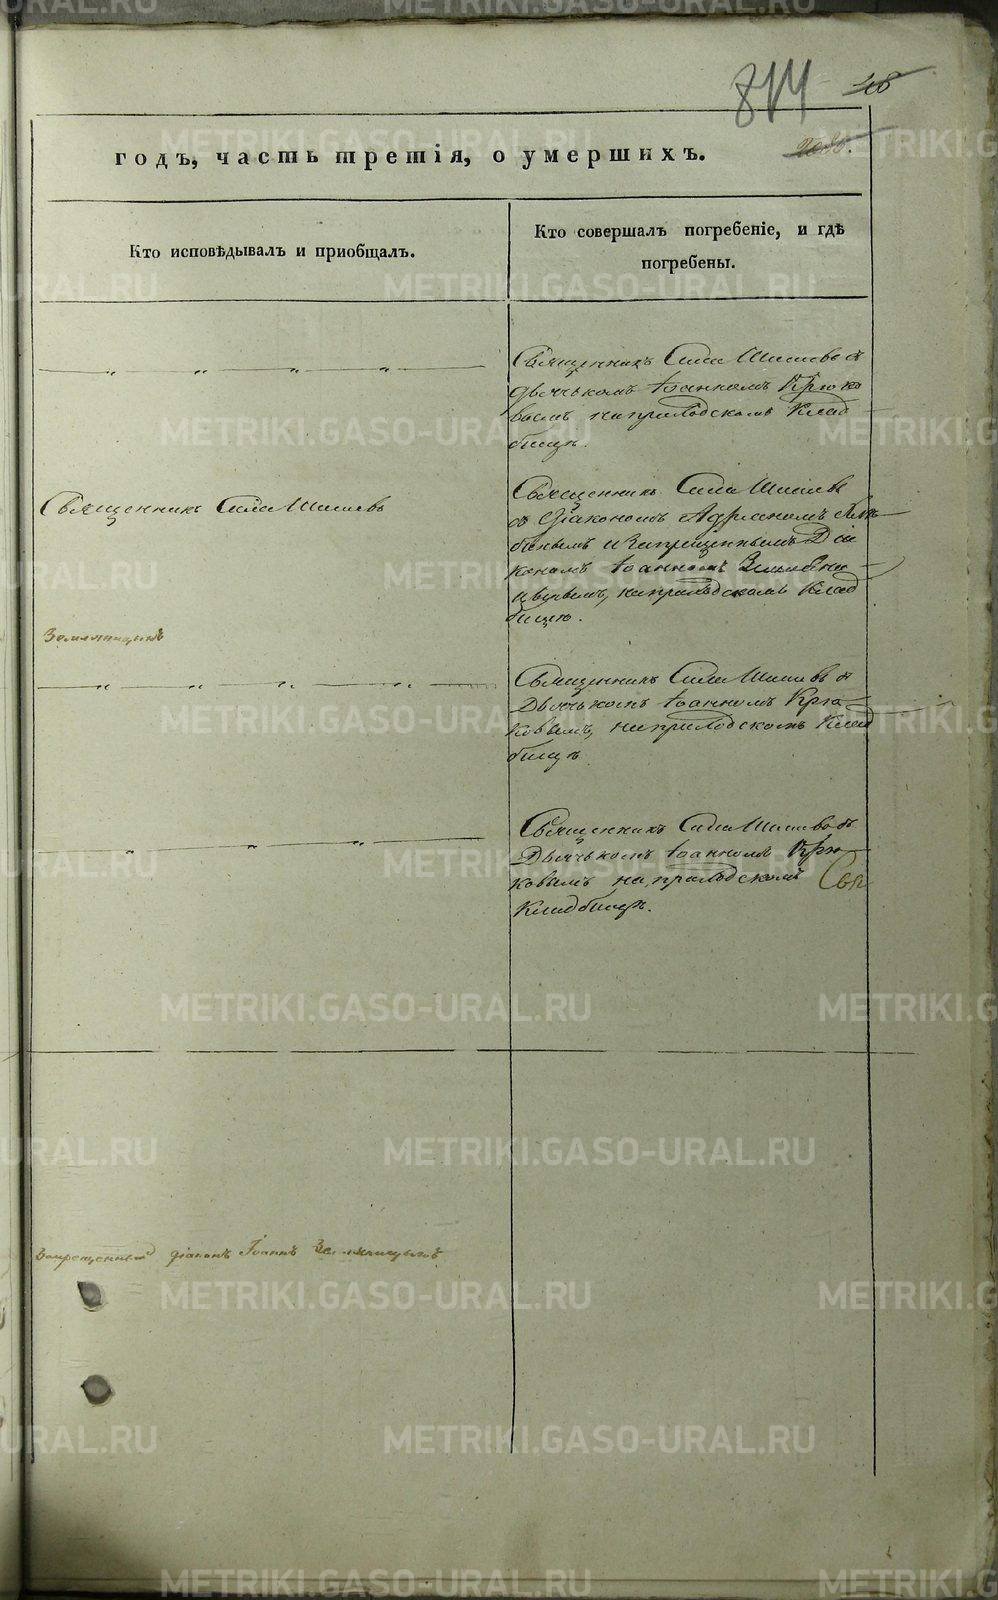 814 48
годъ, часть третія, о умершихъ.
Кто исповѣдывалъ и пріобщалъ.
Кто совершалъ погребеніе, и гдѣ
погребены.
Священникъ Сила Шишевъ съ
дьячькомъ Іоанномъ Крюко
вымъ на приходскомъ Клад
бищѣ.
Священникъ Сила Шишевъ
Священникъ Сила Шишевъ
съ Діакономъ Адріаномъ
и Запрещеннымъ Діа
кономъ Іоанномъ
на приходскомъ Клад
бищѣ.
Земляницынъ
Священникъ Сила Шишевъ съ
Дьячькомъ Іоанномъ Крю
ковымъ, на приходскомъ Клад
бищѣ
Священникъ Сила Шишевъ съ
Дьячькомъ Іоанномъ Крю
ковымъ на приходскомъ
Кладбищѣ.
Запрещенный діаконъ Іоаннъ Земляницынъ
METRIKI.GASO-URAL.RU